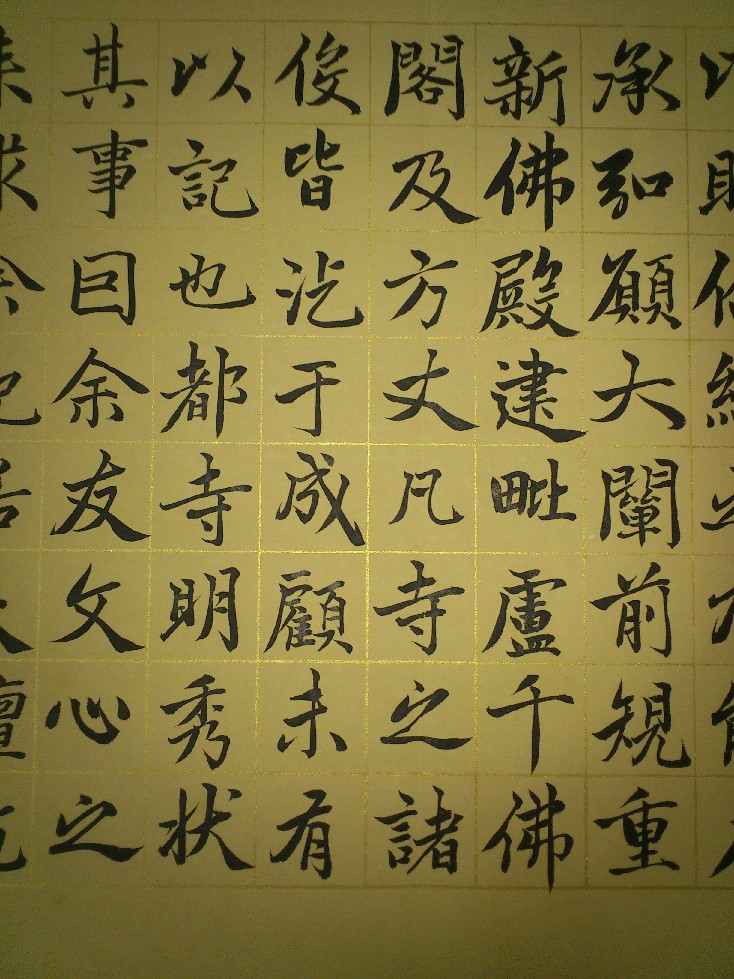 承弘願大闡前規重
新佛殿建毗盧千佛
閣及方丈凡寺之諸
俊皆汔于成顧未有
以記也都寺明秀状
其事囙余友文心之